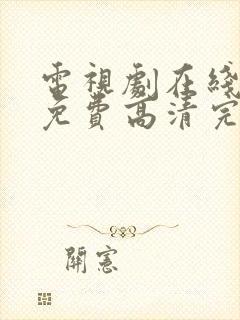 電視劇在綫
免費高清完
開憲